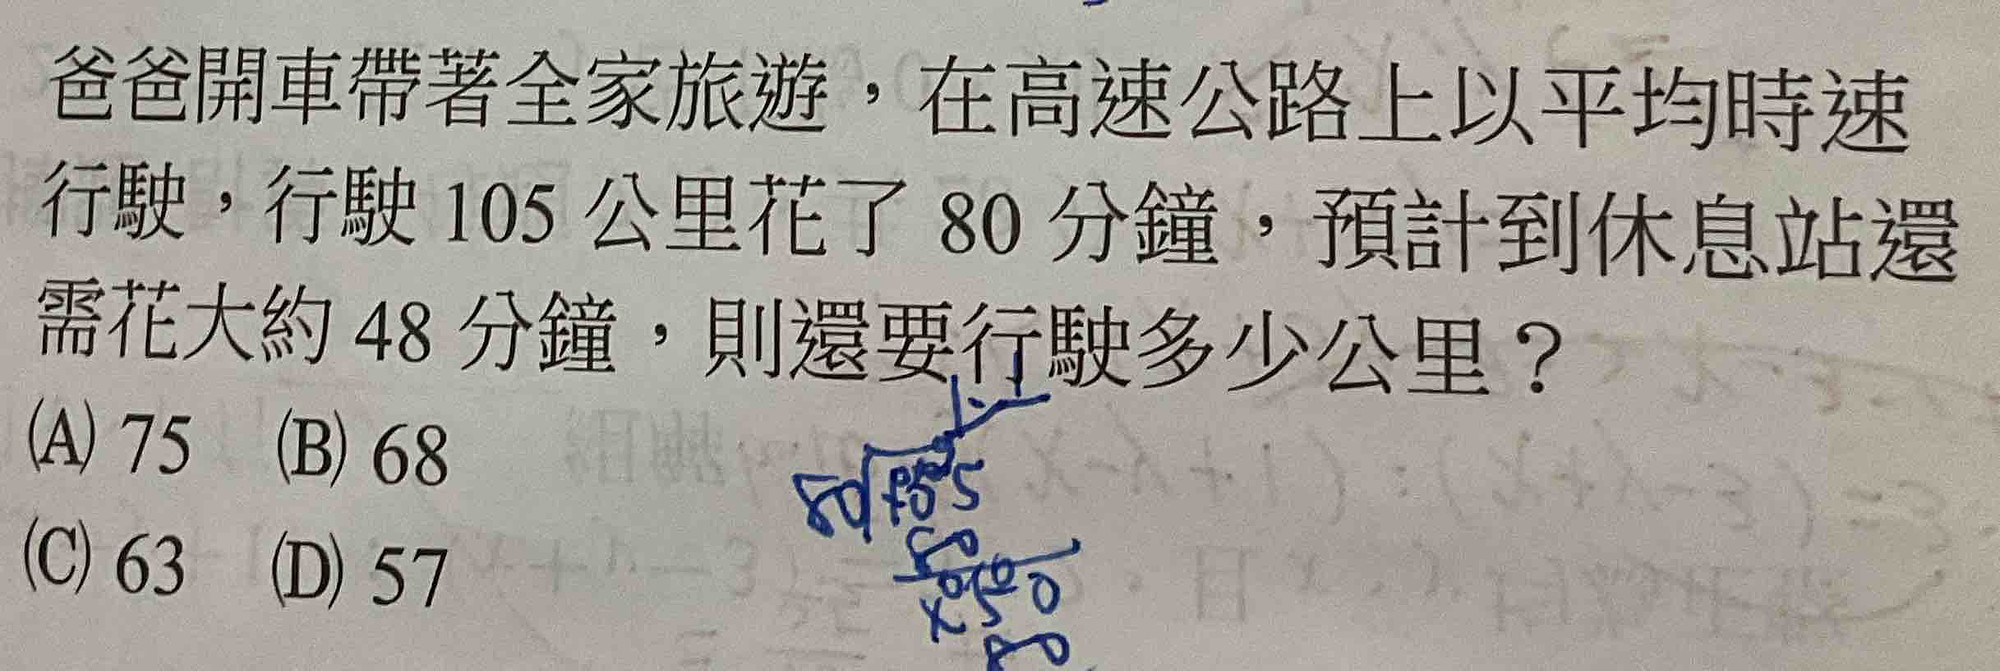 爸爸開車帶著全家旅遊，在高速公路上以平均時速
行駛，行駛 105 公里花了 80 分鐘，預計到休息站還
需花大約 48 分鐘，則還要行駛多少公里？
(A) 75 (B) 68
(C) 63 (D) 57